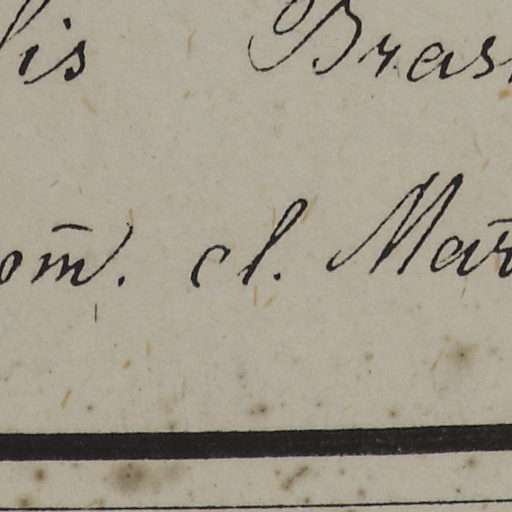 lis Bras
om̄. cl. Mar